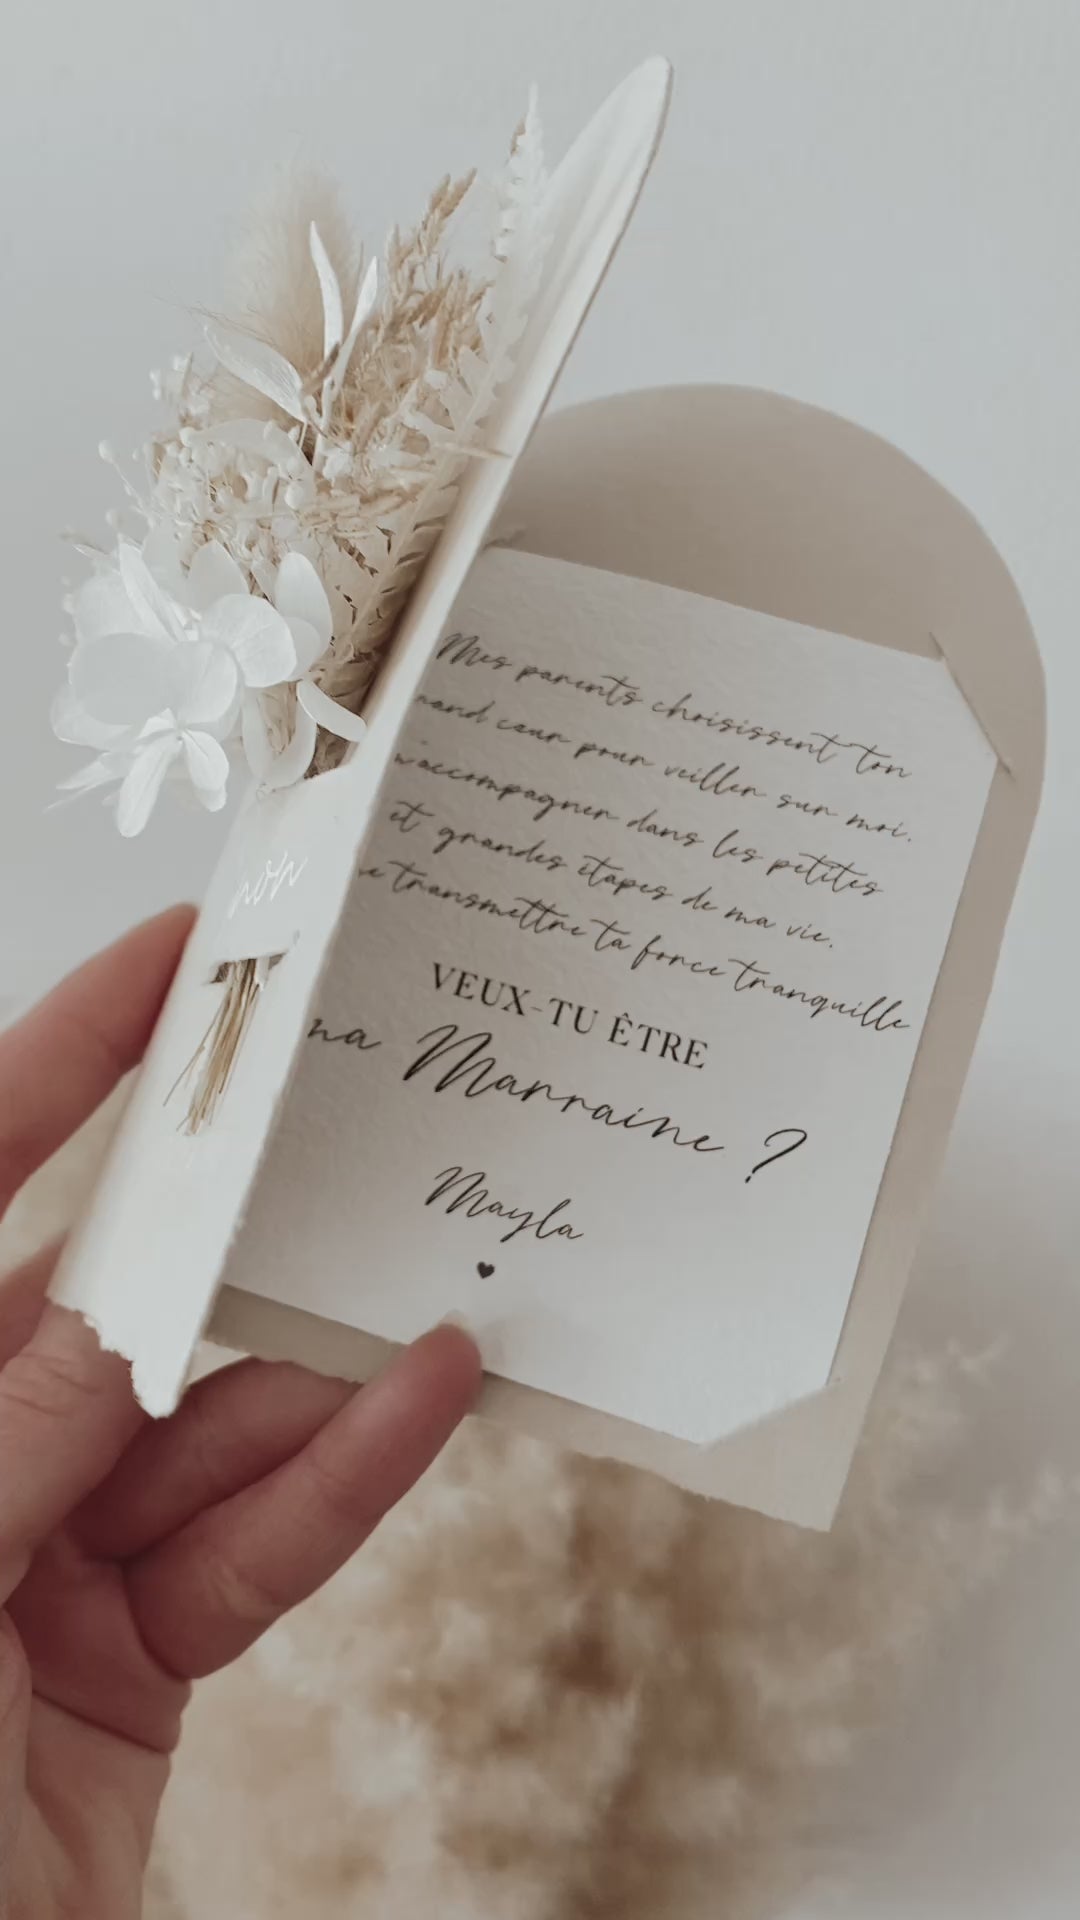 non
Mes parents choisissent ton
rand cœur pour veiller sur moi.
m'accompagner dans les petites
et grandes étapes de ma vie.
e transmettre ta force tranquille
VEUX-TU ÊTRE
ma Marraine ?
Mayla